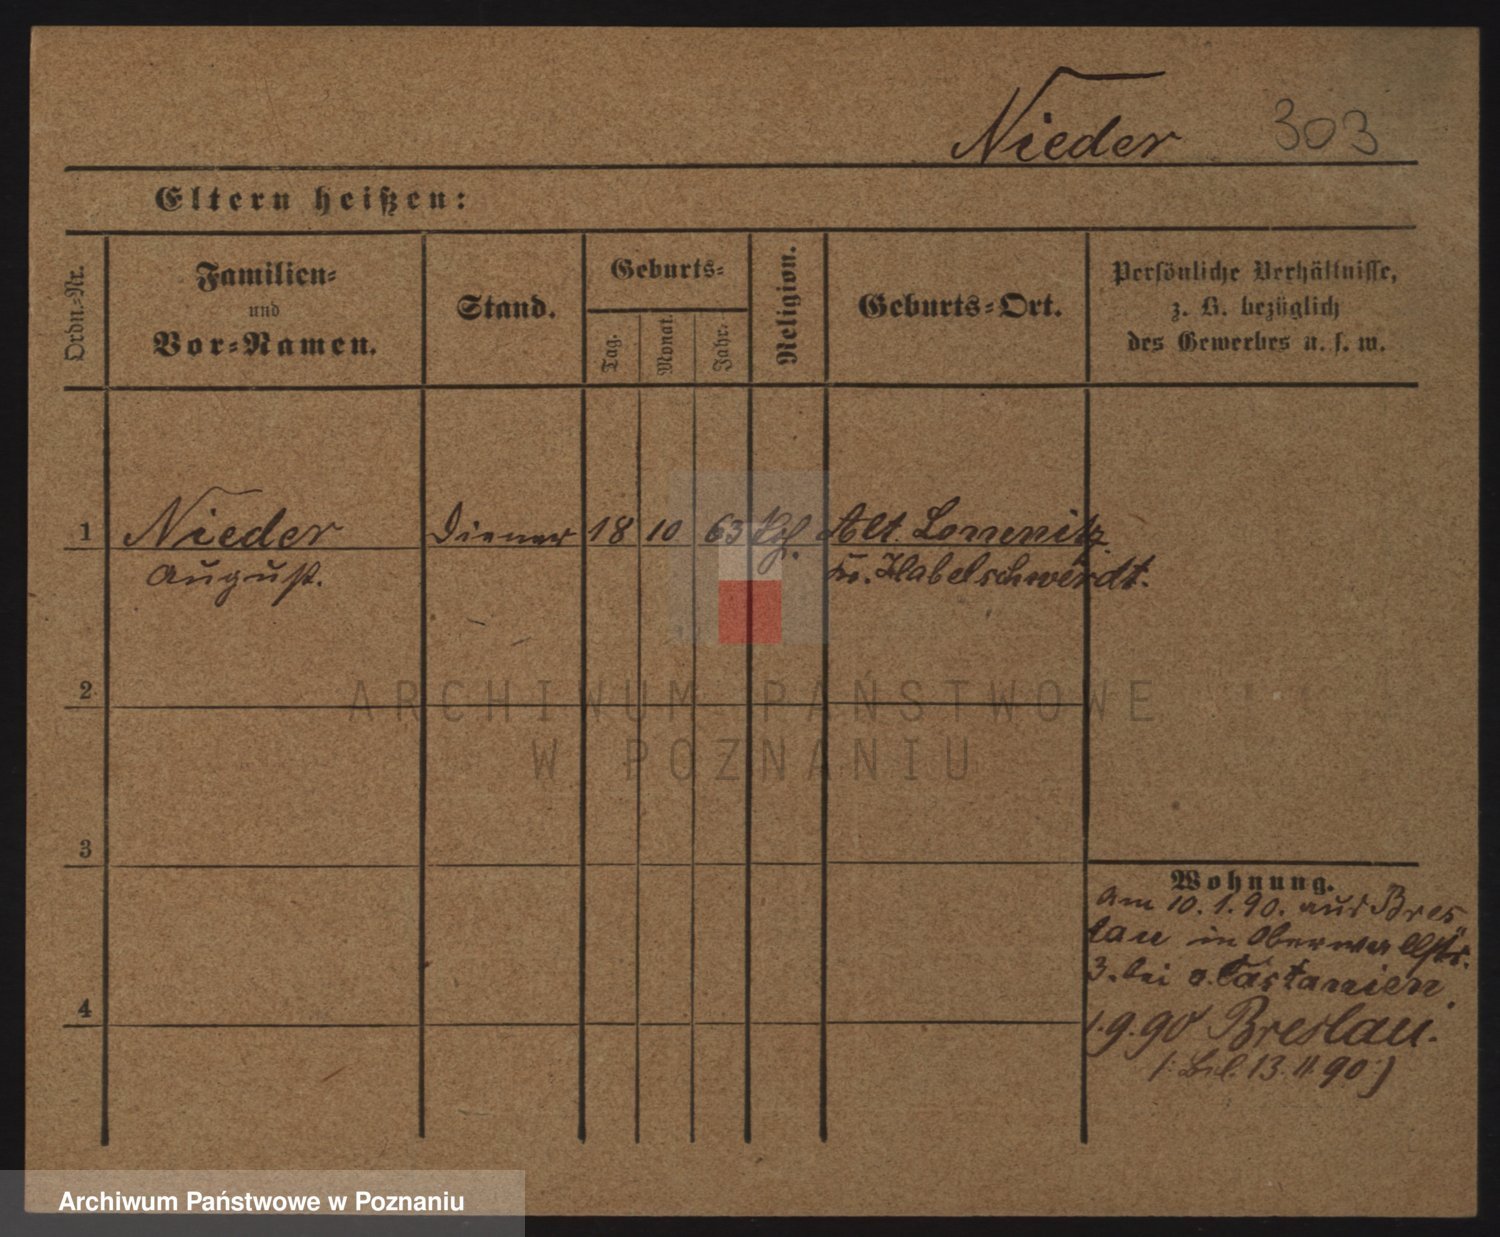 Nieder 303
Eltern heißen:
Ordn.-Nr.
Familien-
und
Vor-Namen.
Stand.
Geburts-
Tag.
Monat.
Jahr.
Religion.
Geburts-Ort.
Persönliche Verhältnisse,
z. B. bezüglich
des Gewerbes u. s. w.
1 Nieder Diener 18 10 63 Alt. Lomnitz
August. Habelschwerdt.
2
3
4
Wohnung.
am 10. 1. 90. aus Bres
lau in Oberwallstr.
3. bei
1.9.90 Breslau.
13.11.90
ARCHIWUM PAŃSTWOWE
W POZNANIU
Archiwum Państwowe w Poznaniu